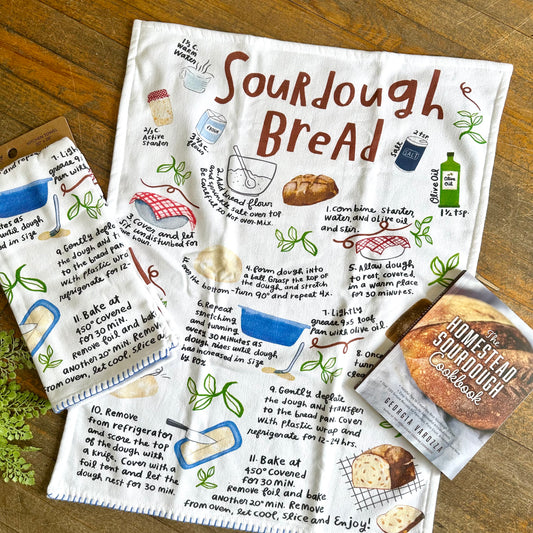 1½ C.
warm
water
Sourdough
Bread
2/3 C.
Active
Starter
flour
2 tsp
SALT
Salt
Olive Oil
Olive
Oil
1½ tsp.
2. Add bread flour
and sprinkle salt over top
Be careful to not over-mix.
1. Combine, starter,
water, and olive oil
and stir.
3. Cover and let
sit undisturbed for
one hour.
4. Form dough into
a ball. Grasp the top of
the dough, and stretch
to the bottom - Turn 90° and repeat 4x.
5. Allow dough
to rest, covered,
in a warm place
for 30 minutes.
6. Repeat
stretching
and turning
every 30 minutes as
dough does until dough
has increased in size
by 80%
7. Lightly
grease 9x5 loaf
pan with olive oil.
8. Once
9. Gently deflate
the dough and transfer
to the bread pan. Cover
with plastic wrap and
refrigerate for 12-24 hrs.
10. Remove
from refrigerator
and score the top
of the dough with
a knife. Cover with a
foil tent and let the
dough rest for 30 min.
11. Bake at
450° covered
for 30 min.
Remove foil and bake
another 20ish min. Remove
from oven, let cool, slice and Enjoy!
7. Lightly
grease 9
pan w
minutes as
until dough
sed in size
9. Gently deflate
the dough and
to the bread pan
with plastic wrap
refrigerate for 12-
11. Bake at
450° covered
for 30 min.
Remove foil and b
another 20ish min. R
from oven, let cool, slice
The
HOMESTEAD
SOURDOUGH
Cookbook
GEORGIA VAROZZA